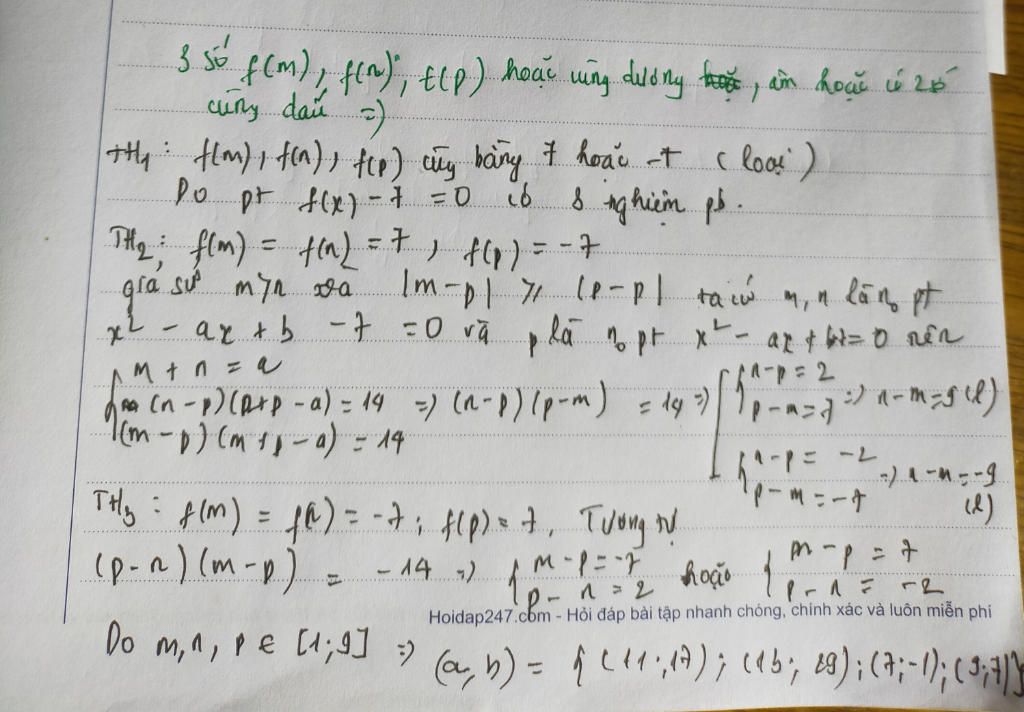 3 số f(m), f(n), f(p) hoặc cùng dương, âm hoặc có 2 số
cùng dấu =>
TH1: f(m), f(n), f(p) cùng bằng 7 hoặc -7 (loại)
Do pt f(x) - 7 = 0 có 3 nghiệm pb.
TH2: f(m) = f(n) = 7, f(p) = -7
giả sử m>n và |m-p| ≥ |p-p| ta có m, n là no pt
x² - ax + b - 7 = 0 và p là no pt x² - ax + b+7=0 nên
{ m + n = a
(n-p)(n+p-a) = 14 => (n-p)(p-m) = 14 => [ { n-p = 2 p-m=7 => n-m=9 (l)
(m-p)(m+p-a) = 14
{ n-p = -2 p-m = -7 => n-m=-9 (l)
TH3: f(m) = f(n) = -7; f(p) = 7, Tương tự
(p-n)(m-p) = -14 => { m-p=-7 p-n=2 hoặc { m-p = 7 p-n = -2
Hoidap247.com - Hỏi đáp bài tập nhanh chóng, chính xác và luôn miễn phí
Do m,n, p ∈ [1;9] => (a,b) = { (11;17); (13; 29); (7;-1); (9;7)}